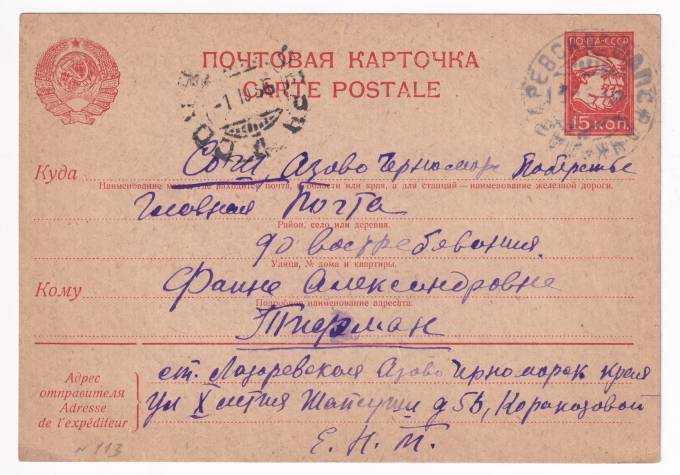 ПОЧТОВАЯ КАРТОЧКА
CARTE POSTALE
ПОЧТА-СССР
15 КОП.
Куда Сочи, Азово Черноморск Побережье
Наименование места, где находится почта, и области или края, а для станций — наименование железной дороги.
Главная Почта
Район, село или деревня.
до востребования
Улица, № дома и квартиры.
Кому Фаине Александровне
Подробное наименование адресата.
Тиерман
Адрес отправителя
Adresse de l'expéditeur
ст. Лазаревская Азово Черноморск края
Ул X летия Шапсуши д 5Б,
Е. Н. Т.
N 113